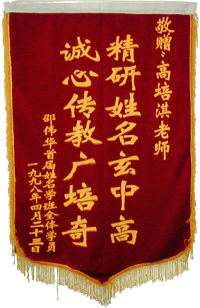 敬赠:高培淇老师
精研姓名玄中高
诚心传教广培奇
邵伟华首届姓名学班全体学员
一九九八年四月二十三日